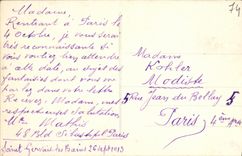 74
Madame,
Rentrant à Paris le
4 Octobre, je vous serai
très reconnaissante si
vous voulez bien attendre
cette date, au sujet des
fantaisies dont vous me
parlez dans votre lettre
Recevez Madame, mes
respectueuses salutations
Mme Mathis
48 Bld Sébastopol Paris
Saint Gervais les Bains 26 1913
Madame
Kohler
Modiste
5 Rue Jean du Bellay 5
Paris 4ème